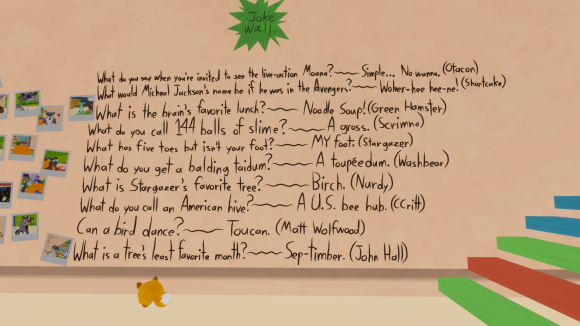 Joke
Wall
What do you say when you're invited to see the live-action Moana? Simple... No wanna. (Otacon)
What would Micheal Jackson's name be if he was in the Avengers? Wolver-hee hee-ne. (Shortcake)
What is the brain's favorite lunch? Noodle Soup! (Green Hamster)
What do you call 144 balls of slime? A gross. (Scrimno)
What has five toes but isn't your foot? MY foot. (Stargazer)
What do you get a balding taidum? A toupéedum. (Washbear)
What is Stargazer's favorite tree? Birch. (Nurdy)
What do you call an American hive? A U.S. bee hub. (CCritt)
Can a bird dance? Toucan. (Matt Wolfwood)
What is a tree's least favorite month? Sep-timber. (John Hall)